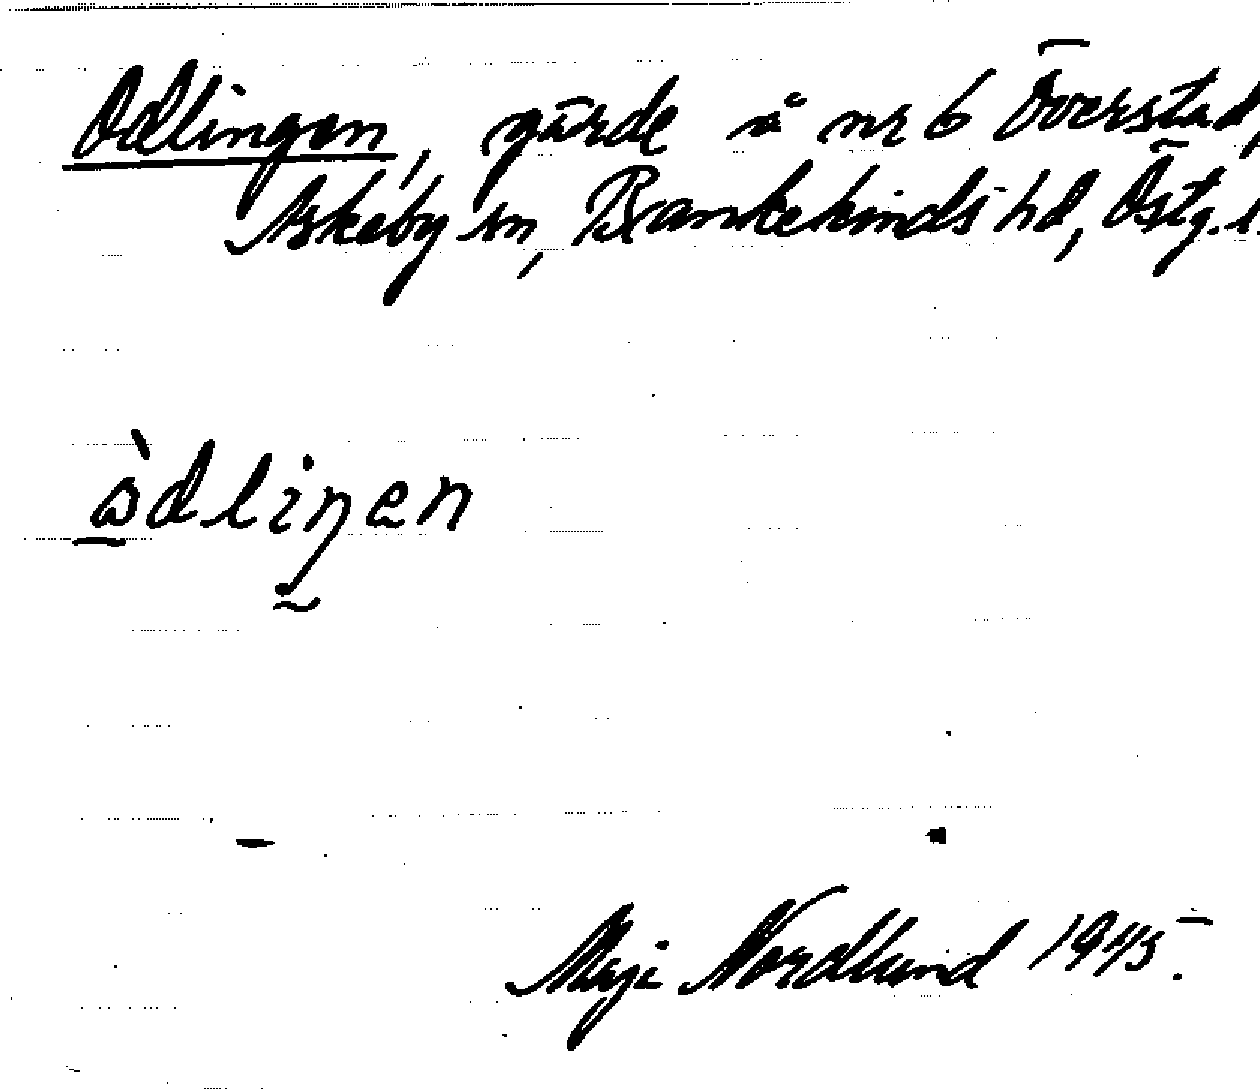 Odlingen, gärde å nr 6 Överstad,
Askeby sn, Bankekinds hd, Östg. l.
òdliŋen
Maji Nordlund 1945.